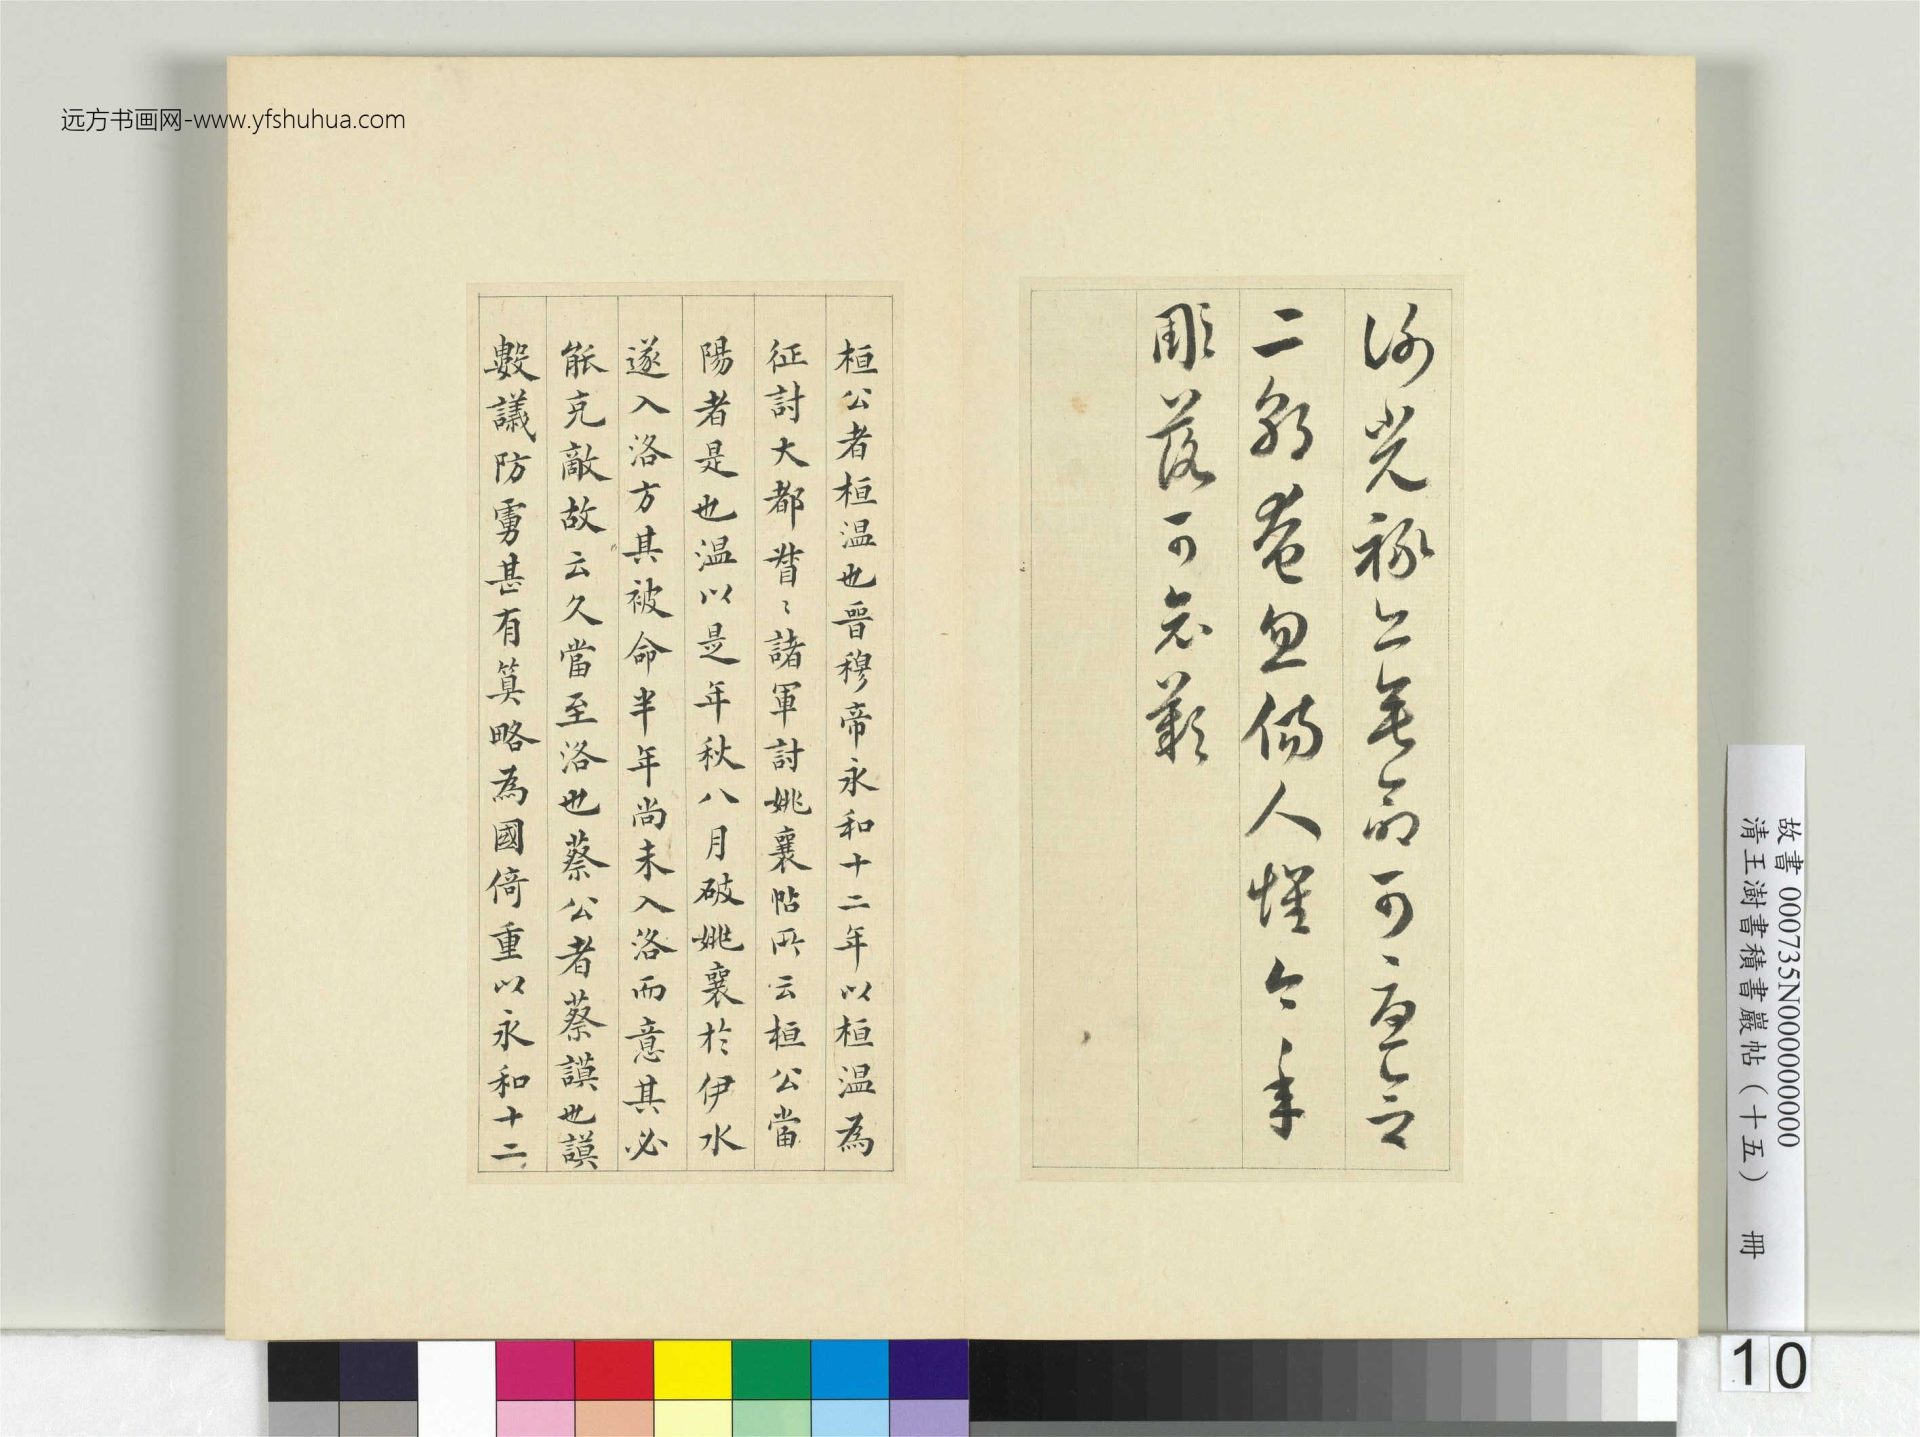 远方书画网-www.yfshuhua.com
光祿亡可言
二奄忽傷人懷今年
彫落可歎
桓公者桓温也晉穆帝永和十二年以桓温為
征討大都督〻諸軍討姚襄帖所云桓公當
陽者是也温以是年秋八月破姚襄於伊水
遂入洛方其被命半年尚未入洛而意其必
能克敵故云久當至洛也蔡公者蔡謨也謨
數議防虜甚有算略為國倚重以永和十二
故書 000735N000000000
清王澍書積書巖帖（十五） 冊
10